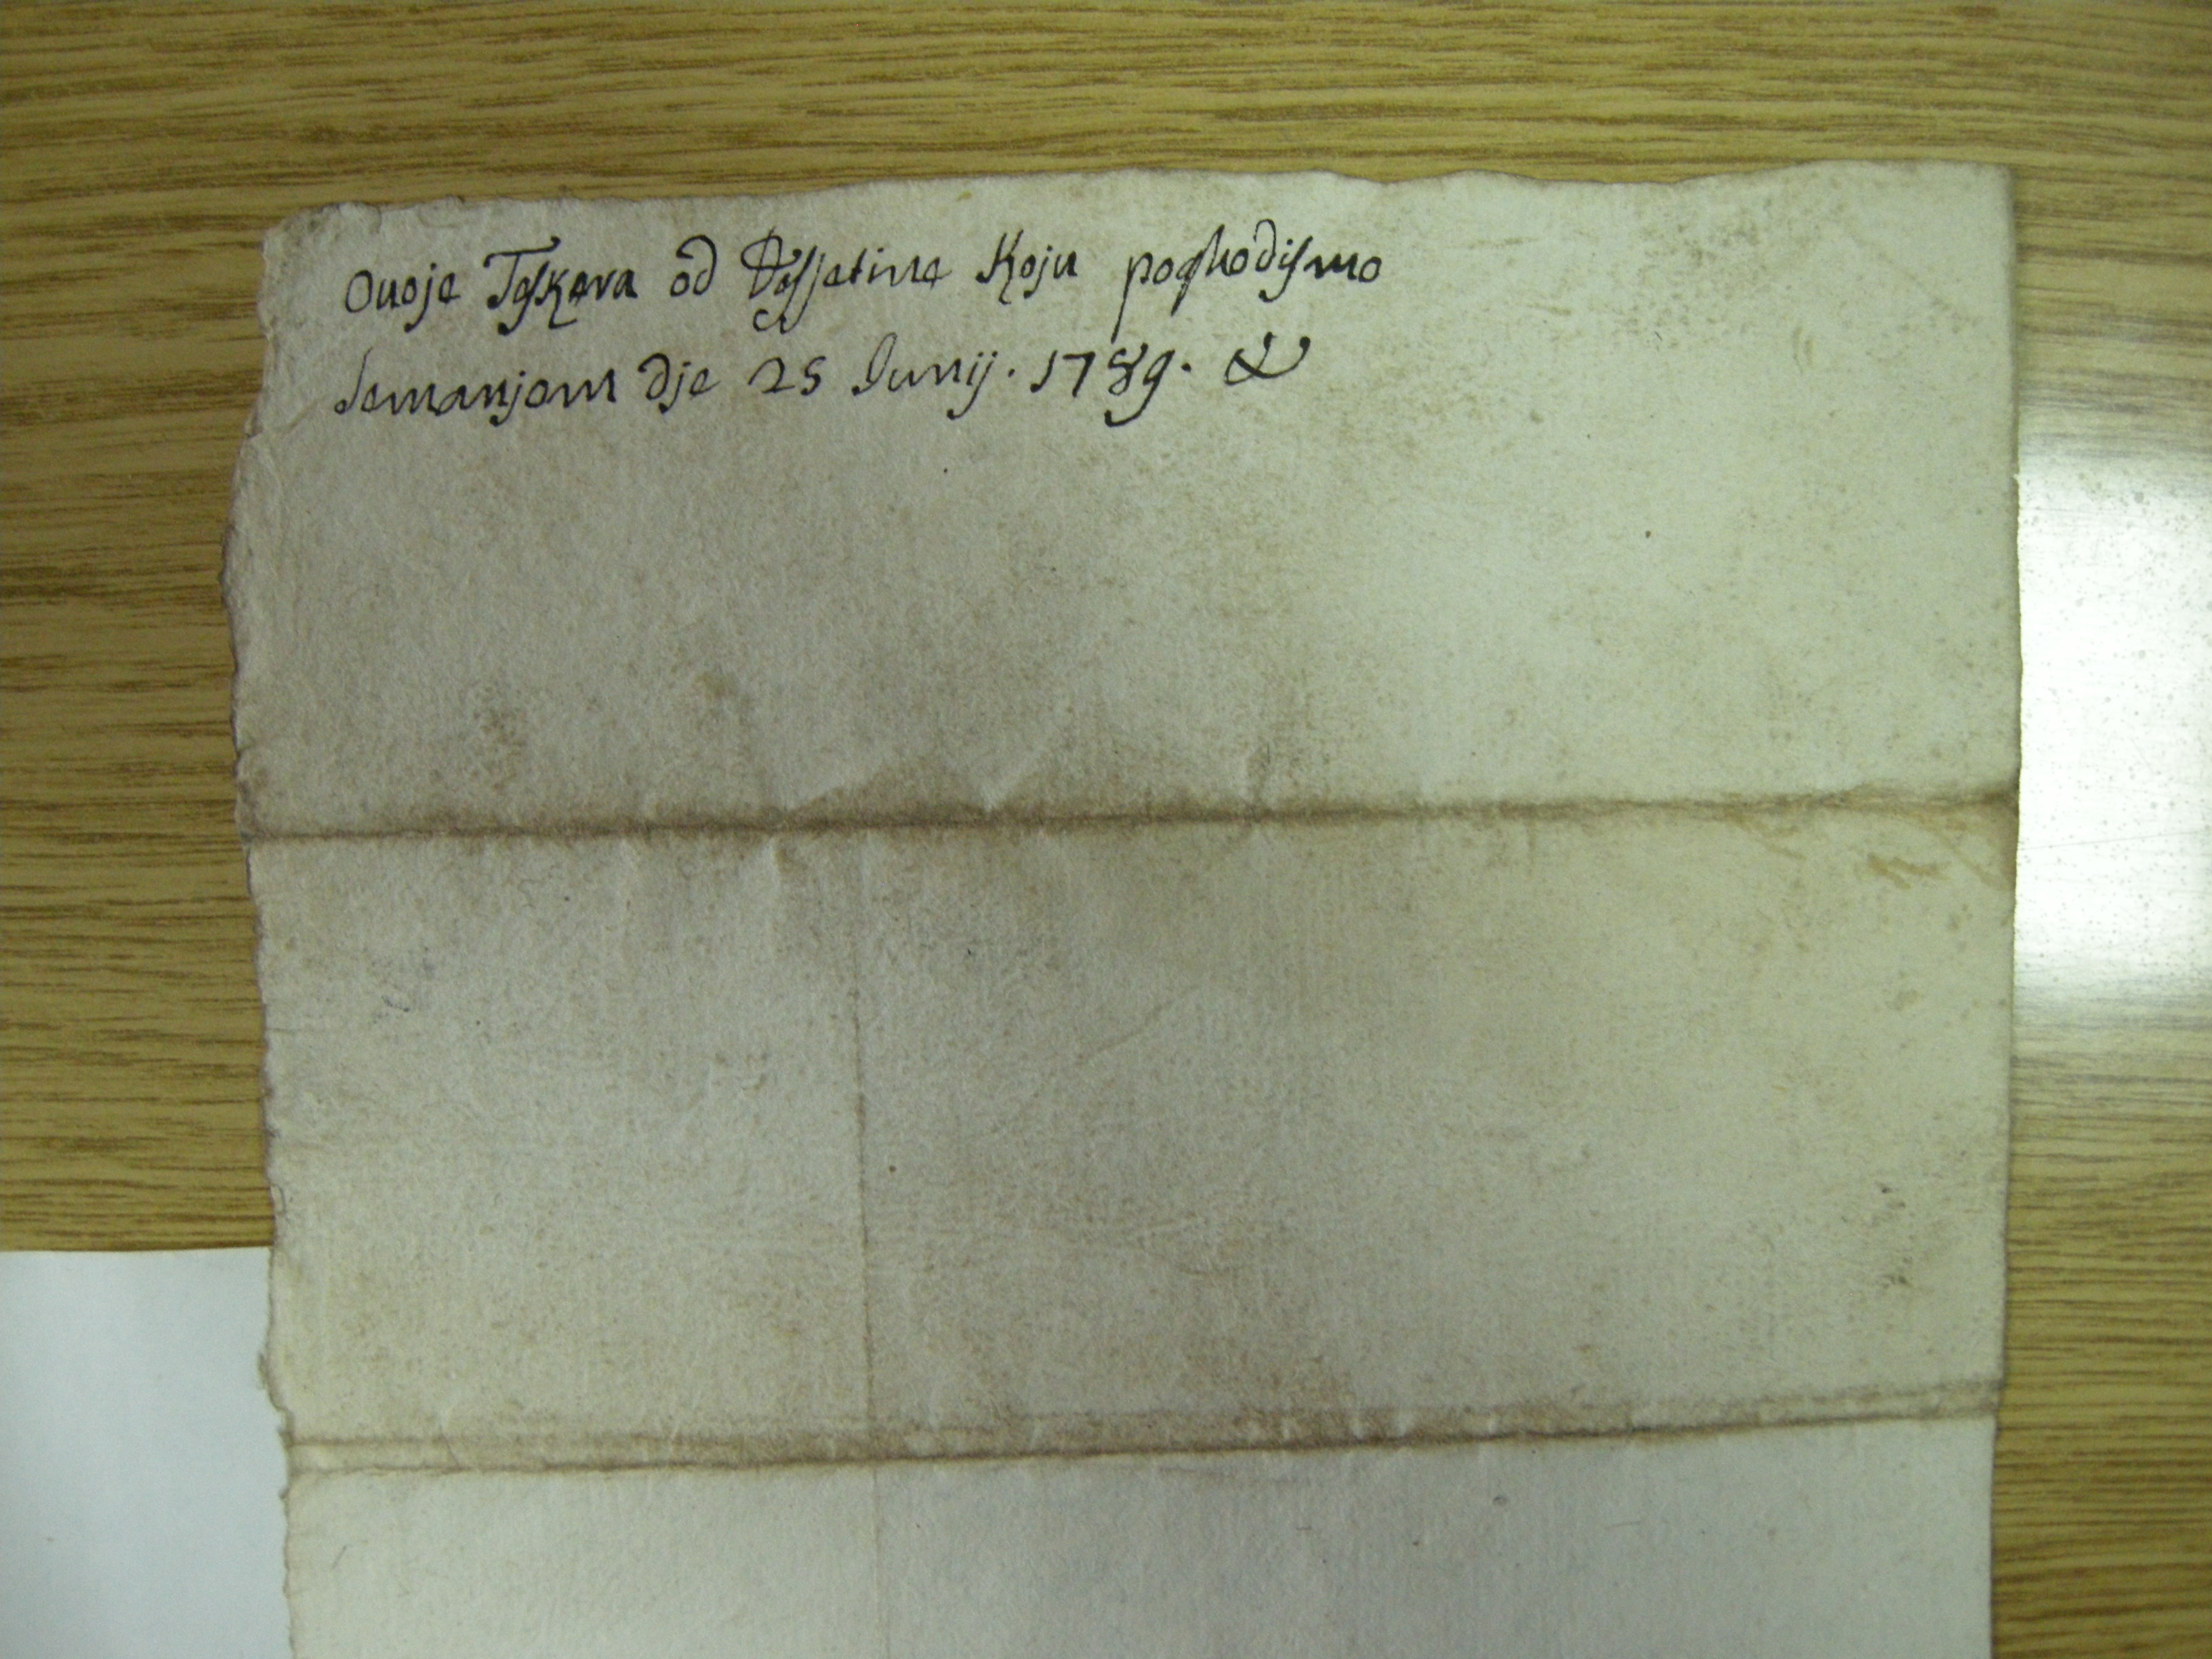 Ovoje Teskera od Desjetine Koju poghodismo
Semanjom dje 25 Junij. 1789.